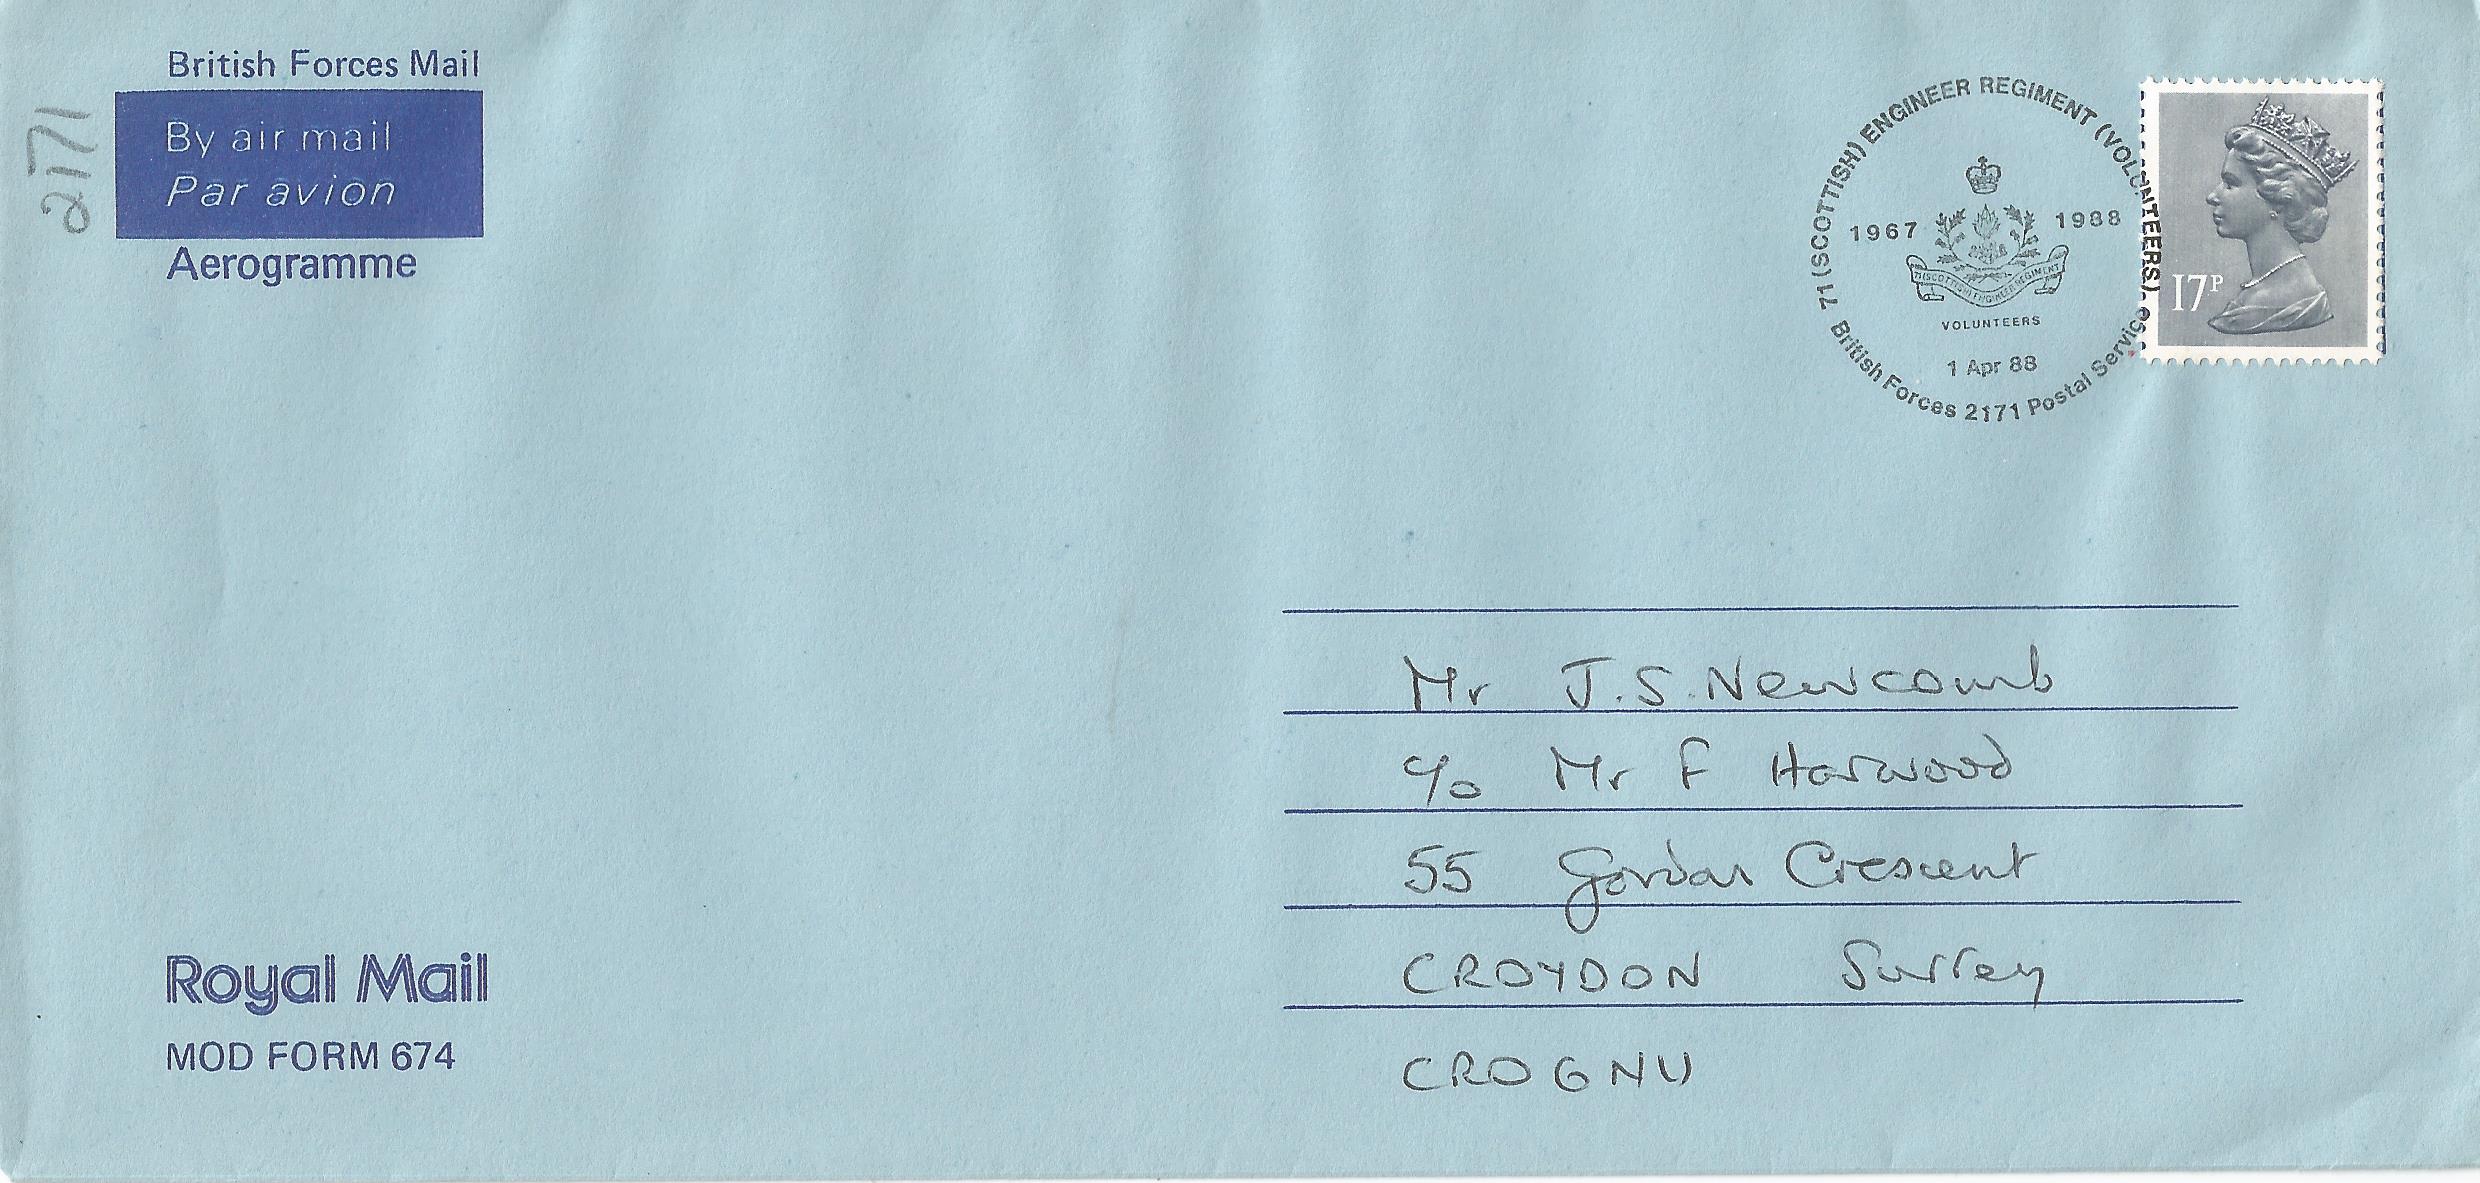 British Forces Mail
By air mail
Par avion
Aerogramme
2171
71 (SCOTTISH) ENGINEER REGIMENT (VOLUNTEERS)
1967 1988
71 (SCOTTISH) ENGINEER REGIMENT
VOLUNTEERS
1 Apr 88
British Forces 2171 Postal Service
17P
Mr J.S. Newcomb
c/o Mr F Harwood
55 Gordon Crescent
CROYDON Surrey
CRO 6NU
Royal Mail
MOD FORM 674